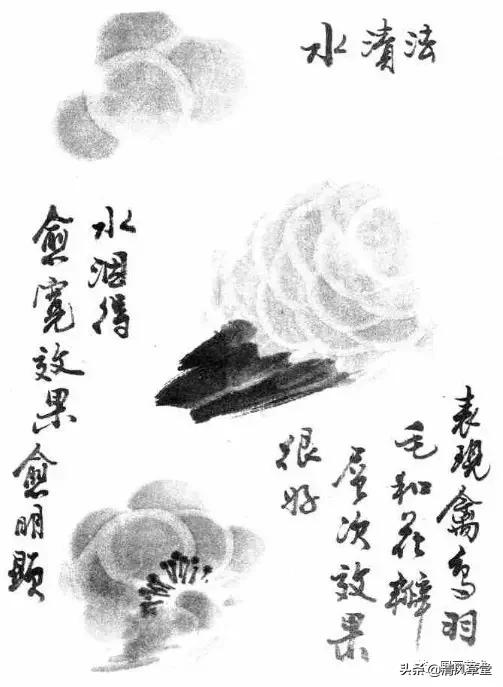 水渍法
水洇得
愈寬效果愈明顕
表現禽鸟羽
毛和花瓣
层次效果
很好
头条@清风草堂